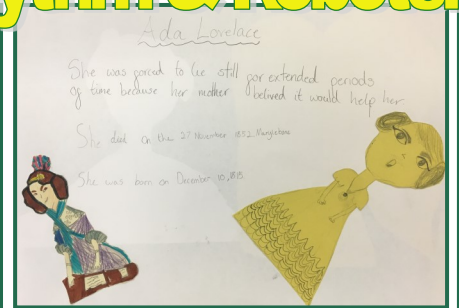 Ada Lovelace
She was forced to lie still for extended periods
of time because her mother belived it would help her
She died on the 27 November 1852 Marylebone
She was born on December 10, 1815